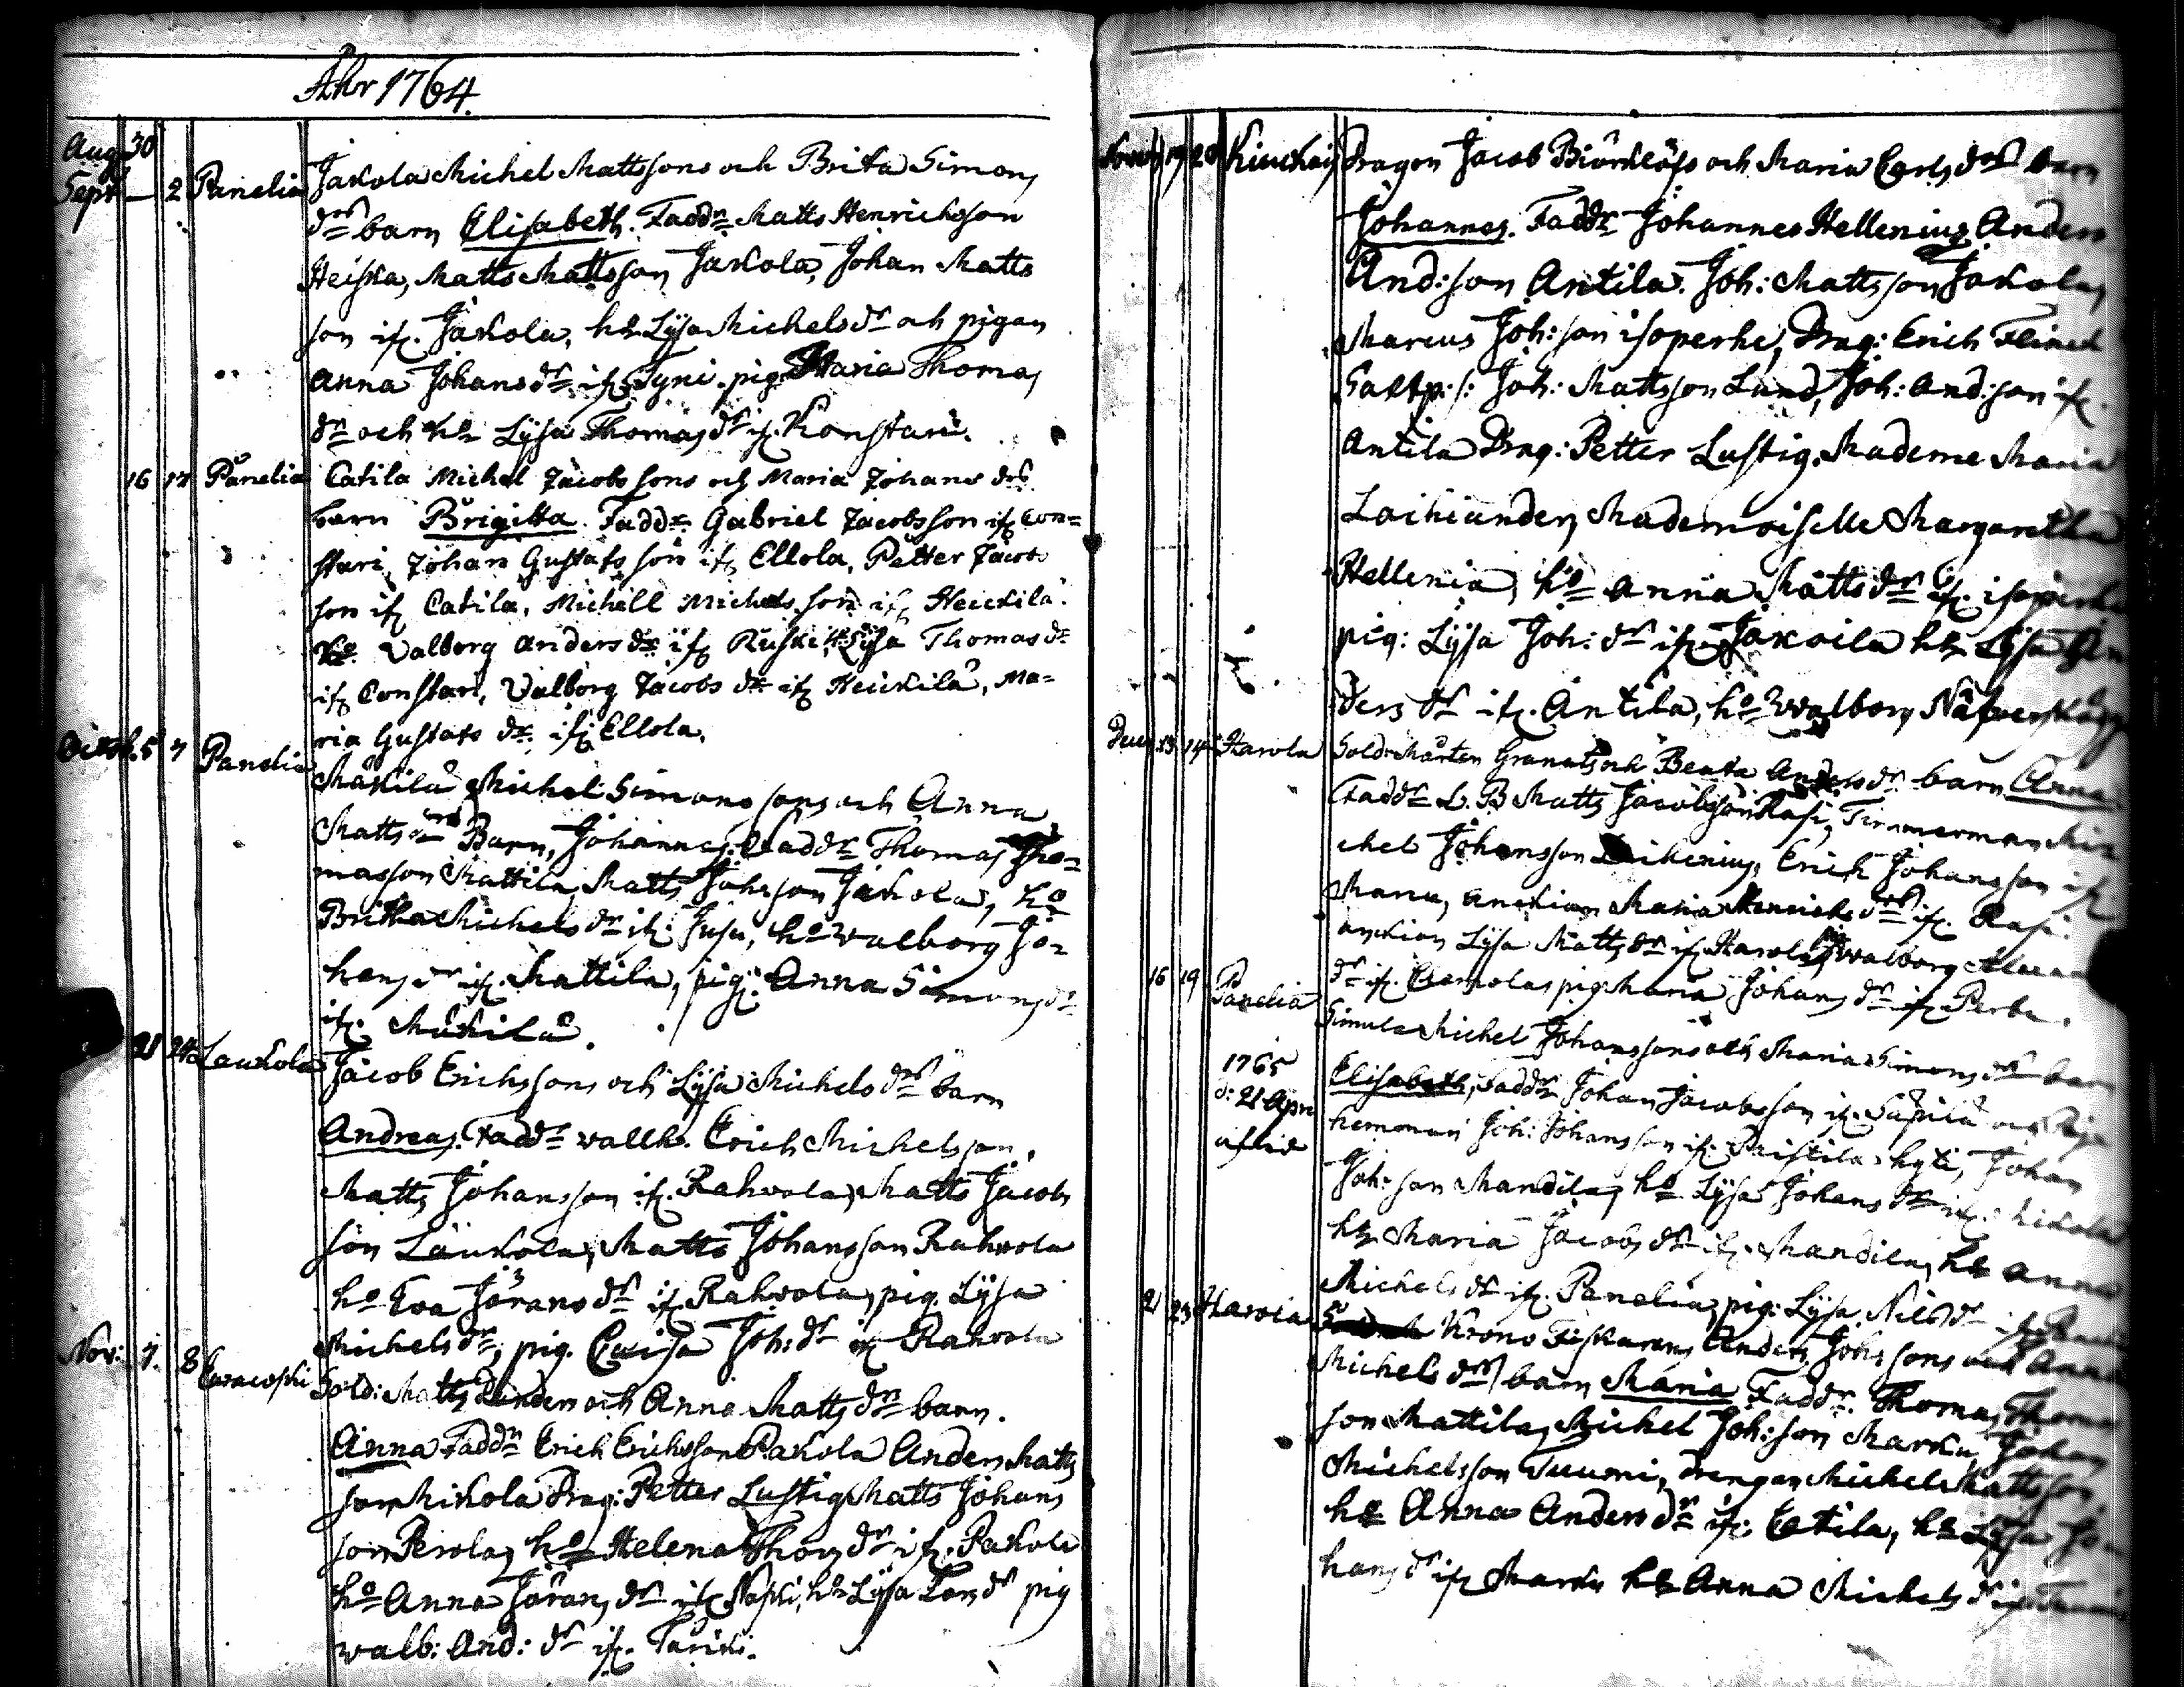 Åhr 1764.
Aug. 30
Sept. — 2 Panelia Jaxola Michel Mattssons och Brita Simons
drs barn Elisabeth. Faddr Matts Henrichsson
Heiska, Matts Mattsson Jaxola, Johan Matts
son if. Jaxola, h. Lysa Michelsdr och pigan
Anna Johansdr if. Tyni. pig. Maria Thomas
dr och h. Lysa Thomasdr if. Konstari.
16 17 Panelia Catila Michel Jacobssons och Maria Johans drs
barn Brigitta. Faddr Gabriel Jacobsson if Con=
stari, Johan Gustafsson if Ellola, Petter Jacob
son if Catila, Michell Michelsson if Heickilä.
ho. Valborg Anders dr if Ruski, h. Lysa Thomas dr
if Constari, Valborg Jacobs dr if Heickilä, Ma=
ria Gustafs dr if Ellola.
Octob. 5 7 Panelia
Mäkilä Michel Simonssons och Anna
Matts drs Barn, Johannes. Faddr Thomas Tho=
masson Mattila, Matts Johsson Jaxola, ho
Britha Michels dr if. Jusu, ho Walborg Jo=
hans dr if. Mattila, pig: Anna Simonsdr
if. Mäkilä.
21 24 Laukola Jacob Erichssons och Lysa Michels drs barn
Andreas. Faddr wallh. Erich Michelsson,
Matts Johansson if. Rahvola, Matts Jacobs
son Laukola, Matts Johansson Rahvola
ho Eva Jörans dr if Rahvola, pig. Lysa
Michelsdr, pig. Caisa Joh: dr if Rahvola
Nov: 7. 8 Euracoski Sold: Matts Linders och Anna Matts drs barn.
Anna Faddr Erich Erichsson Pakola Anders Matts
son Mikola Drag: Petter Lustig Matts Johans
son Perola, ho Helena Thoms dr if. Pakola
ho Anna Jörans dr if Naski, h. Lysa Lars dr pig
walb: And: dr if.
Novemb. 19 20 Kiukais Dragon Jacob Biörklöfs och Maria Carls drs barn
Johannes. Faddr Johannes Hellenius Anders
And:son Antila. Joh: Mattsson Jaxola,
Marcus Joh:son isoperhe, Drag: Erich Flinck
Joh: Mattsson Lund, Joh: And:son if.
Antila Drag: Petter Lustig. Madame Maria
Mademoiselle Margaretha
Hellenia, ho Anna Mattsdr if. isoperhe
pig: Lysa Joh: dr if. Jaxoila h. Lysa An
ders dr if. Antila, ho Walborg
Dec. 13 14 Harola Sold: Mårten Granats och Beata Anders dr barn Anna
Faddr L. B Matts Jacobsson Rasi, Timmerman Mi
chel Johansson Erich Johansson if.
Manu, änckian Maria Henrichs dr if. Rasi.
änckian Lysa Matts dr if. Harola, Walborg
dr if. pig. Maria Johans dr if Perbu.
16 19 Panelia
Simula Michel Johanssons och Maria Simons drs barn
1765
d: 21 Apr
aflid
Elisabeth, Faddr Johan Jacobsson if.
Joh: Johansson if. Johan
Joh:son Mandila, ho Lysa Johans dr if. Mikola
h. Maria Jacobs dr if. Mandila, h. Anna
Michels dr if. Panelia, pig: Lysa Nils dr if.
21 23 Harola Krono Fiskarens Anders Johssons och Anna
Michels drs barn Maria Faddr. Thomas Thoma
son Mattila, Michel Joh:son Marku, Johan
Michelsson Tuumi, drengen Michel Mattsson,
h. Anna Anders dr if. Eatila, h. Lysa Jo
hans dr if Marku h. Anna Michels dr if